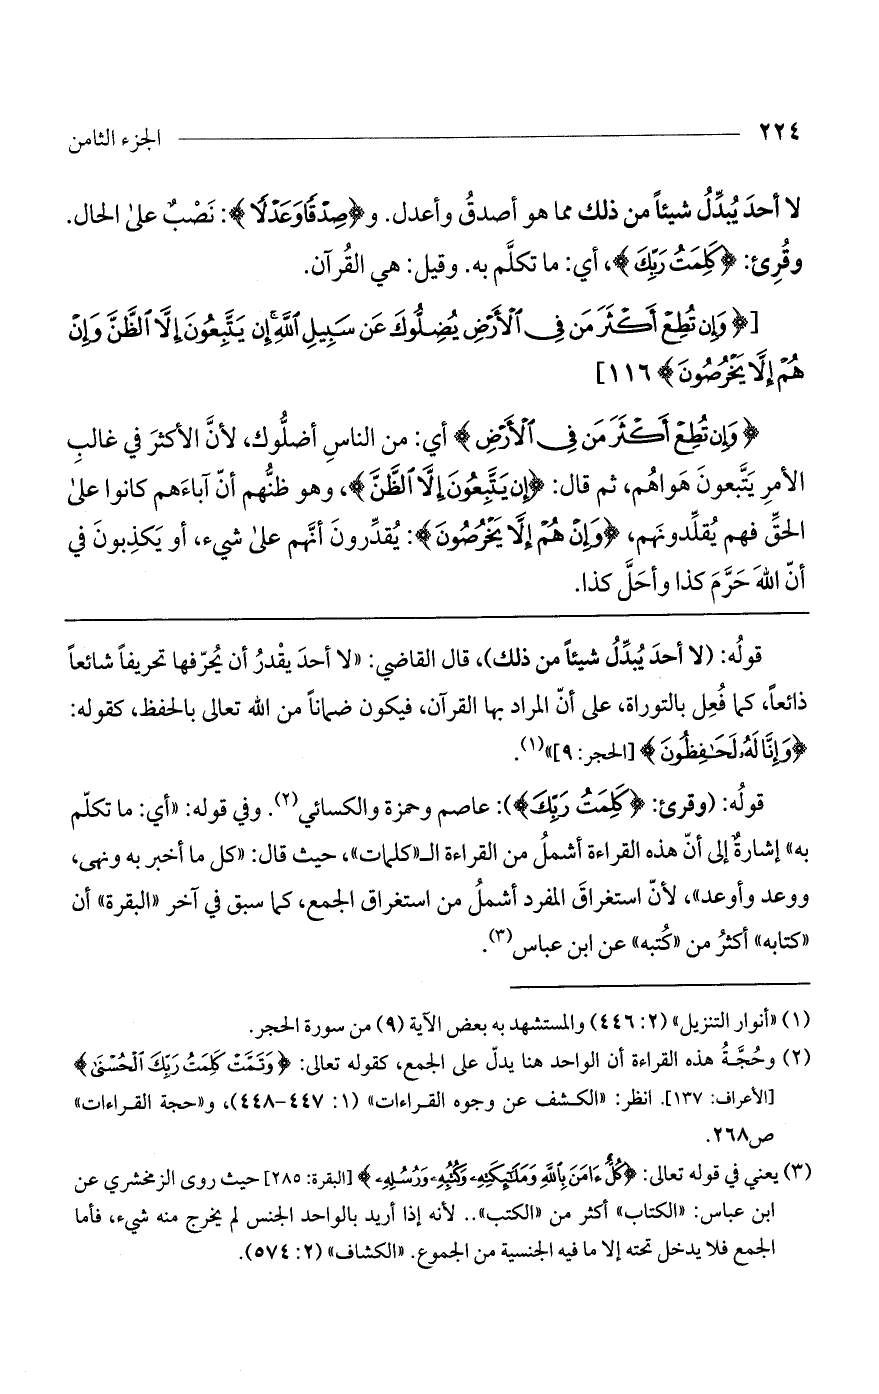 ٢٢٤ الجزء الثامن
لا أحدَ يُبدِّلُ شيئاً من ذلك مما هو أصدقُ وأعدل. و﴿صِدْقًا وَعَدْلًا﴾: نَصْبٌ على الحال.
وقُرِئ: ﴿كَلِمَتُ رَبِّكَ﴾، أي: ما تكلَّم به. وقيل: هي القُرآن.
[﴿وَإِن تُطِعْ أَكْثَرَ مَن فِى ٱلْأَرْضِ يُضِلُّوكَ عَن سَبِيلِ ٱللَّهِ ۚ إِن يَتَّبِعُونَ إِلَّا ٱلظَّنَّ وَإِنْ
هُمْ إِلَّا يَخْرُصُونَ﴾ ١١٦]
﴿وَإِن تُطِعْ أَكْثَرَ مَن فِى ٱلْأَرْضِ﴾ أي: من الناسِ أضلُّوك، لأنَّ الأكثرَ في غالبِ
الأمرِ يَتَّبعونَ هَواهُم، ثم قال: ﴿إِن يَتَّبِعُونَ إِلَّا ٱلظَّنَّ﴾، وهو ظنُّهم أنّ آباءَهم كانوا على
الحقِّ فهم يُقلِّدونَهم، ﴿وَإِنْ هُمْ إِلَّا يَخْرُصُونَ﴾: يُقدِّرونَ أنَّهم على شيء، أو يَكذِبونَ في
أنّ اللهَ حَرَّمَ كذا وأحَلَّ كذا.
قولُه: (لا أحدَ يُبدِّلُ شيئاً من ذلك)، قال القاضي: «لا أحدَ يقْدرُ أن يُحرّفها تحريفاً شائعاً
ذائعاً، كما فُعِل بالتوراة، على أنّ المراد بها القرآن، فيكون ضماناً من الله تعالى بالحفظ، كقوله:
﴿وَإِنَّا لَهُۥ لَحَـٰفِظُونَ﴾ [الحجر: ٩]»(١).
قولُه: (وقرئ: ﴿كَلِمَتُ رَبِّكَ﴾): عاصم وحمزة والكسائي(٢). وفي قوله: «أي: ما تكلّم
به» إشارةٌ إلى أنّ هذه القراءة أشملُ من القراءة الـ«كلمات»، حيث قال: «كل ما أخبر به ونهى،
ووعد وأوعد»، لأنّ استغراقَ المفرد أشملُ من استغراق الجمع، كما سبق في آخر «البقرة» أن
«كتابه» أكثرُ من «كُتبه» عن ابن عباس(٣).
(١) «أنوار التنزيل» (٢: ٤٤٦) والمستشهد به بعض الآية (٩) من سورة الحجر.
(٢) وحُجَّةُ هذه القراءة أن الواحد هنا يدلّ على الجمع، كقوله تعالى: ﴿وَتَمَّتْ كَلِمَتُ رَبِّكَ ٱلْحُسْنَىٰ﴾
[الأعراف: ١٣٧]. انظر: «الكشف عن وجوه القراءات» (١: ٤٤٧-٤٤٨)، و«حجة القراءات»
ص٢٦٨.
(٣) يعني في قوله تعالى: ﴿كُلٌّ ءَامَنَ بِٱللَّهِ وَمَلَـٰٓئِكَتِهِۦ وَكُتُبِهِۦ وَرُسُلِهِۦ﴾ [البقرة: ٢٨٥] حيث روى الزمخشري عن
ابن عباس: «الكتاب» أكثر من «الكتب».. لأنه إذا أريد بالواحد الجنس لم يخرج منه شيء، فأما
الجمع فلا يدخل تحته إلا ما فيه الجنسية من الجموع. «الكشاف» (٢: ٥٧٤).